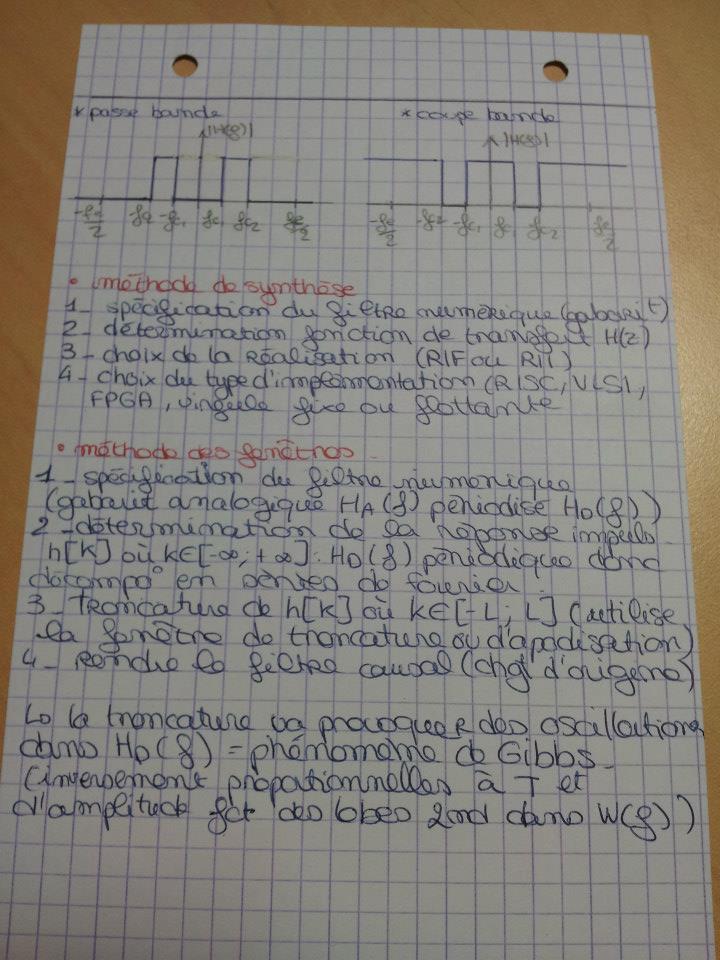 * passe bande
* coupe bande
|H(f)|
|H(f)|
-fe/2 -fc2 -fc1 fc1 fc2 fe/2
-fe/2 -fc2 -fc1 fc1 fc2 fe/2
• méthode de synthèse
1- spécification du filtre numérique (gabarit)
2- détermination fonction de transfert H(z)
3- choix de la réalisation (RIF ou RII)
4- choix du type d'implémentation (RISC, VLSI,
FPGA, virgule fixe ou flottante
• méthode des fenêtres
1- spécification du filtre numérique
(gabarit analogique HA(f) périodisé HD(f))
2- détermination de la réponse impuls.
h[k] où k∈[-∞; +∞] : HD(f) périodique donc
décompo° en séries de fourier.
3- Troncature de h[k] où k∈[-L; L] (utilise
la fenêtre de troncature ou d'apodisation)
4- Rendre le filtre causal (chgt d'origine)
↳ la troncature va provoquer des oscillations
dans HD(f) = phénomène de Gibbs
(inversement proportionnelles à T et
d'amplitude fct des lobes 2nd dans W(f))